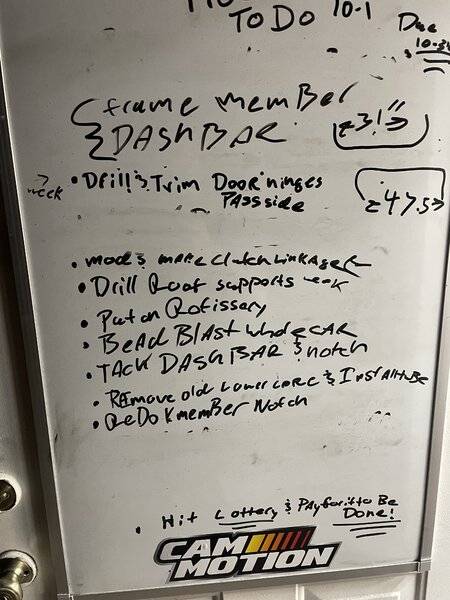 To Do 10-1
Due
10-31
Frame Member
& DASH BAR
31"
week
• Drill & Trim Door hinges
PASS side
47.5
• mod & make clutch linkage
• Drill Roof supports
• Put on Rotissery
• Bead Blast whole CAR
• TACK DASH BAR & notch
• REmove old Lower core & Install tube
• ReDo K memBer Notch
• Hit Lottery & Pay for it to Be
Done!
CAM
MOTION